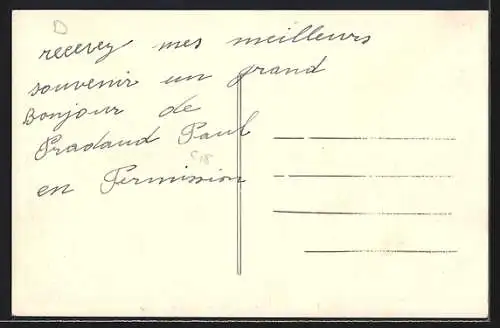 D
recevez mes meilleurs
souvenir un grand
Bonjour de
Pradaud Paul
518
en Permission